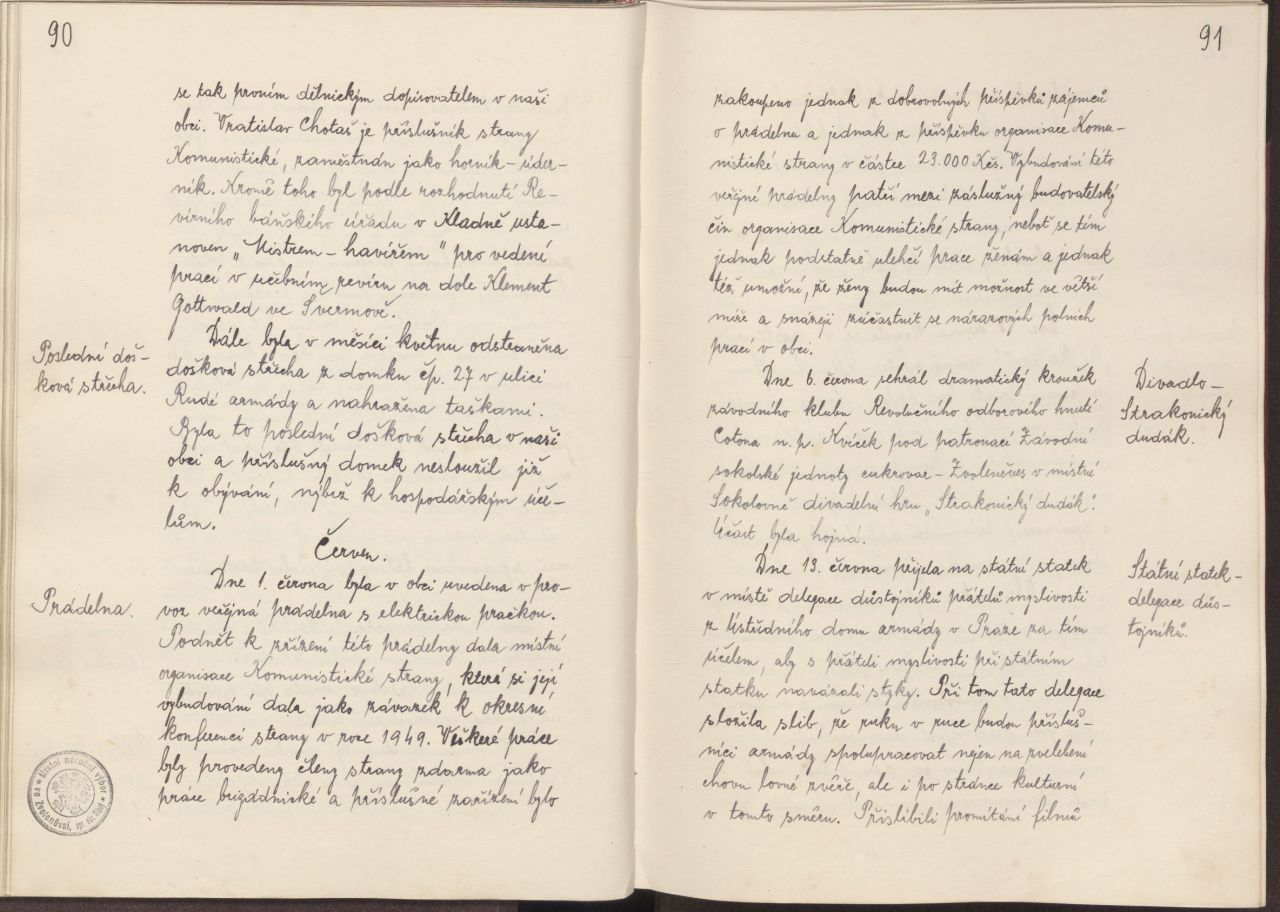 90
se tak prvním dělnickým dopisovatelem v naší
obci. Vratislav Chotaš je příslušník strany
Komunistické, zaměstnán jako horník - úder-
ník. Kromě toho byl podle rozhodnutí Re-
vírního báňského úřadu v Kladně usta-
noven „Mistrem - havířem" pro vedení
prací v učebním revíru na dole Klement
Gottwald ve Švermově.
Dále byla v měsíci květnu odstraněna
Poslední doš-
ková střecha.
došková střecha z domku čp. 27 v ulici
Rudé armády a nahražena taškami.
Byla to poslední došková střecha v naší
obci a příslušný domek nesloužil již
k obývání, nýbrž k hospodářským úče-
lům.
Červen.
Dne 1. června byla v obci uvedena v pro-
Prádelna.
voz veřejná prádelna s elektrickou pračkou.
Podnět k zřízení této prádelny dala místní
organisace Komunistické strany, která si její
vybudování dala jako závazek k okresní
konferenci strany v roce 1949. Veškeré práce
byly provedeny členy strany zdarma jako
práce brigádnické a příslušné zařízení bylo
Místní národní výbor
ve Zvoleněvsi,
91
zakoupeno jednak z dobrovolných příspěvků zájemců
o prádelnu a jednak z příspěvku organisace Komu-
nistické strany v částce 23.000 Kčs. Vybudování této
veřejné prádelny patří mezi záslužný budovatelský
čin organisace Komunistické strany, neboť se tím
jednak podstatně ulehčí práce ženám a jednak
též umožní, že ženy budou mít možnost ve větší
míře a snázeji zúčastnit se nárazových polních
prací v obci.
Dne 6. června sehrál dramatický kroužek
Divadlo -
Strakonický
dudák.
závodního klubu Revolučního odborového hnutí
Cotona n. p. Kvíček pod patronací Závodní
sokolské jednoty cukrovar - Zvoleněves v místní
Sokolovně divadelní hru „Strakonický dudák".
Účast byla hojná.
Dne 13. června přijela na státní statek
Státní statek -
delegace důs-
tojníků.
v místě delegace důstojníků přátelů myslivosti
z Ústředního domu armády v Praze za tím
účelem, aby s přáteli myslivosti při státním
statku navázali styky. Při tom tato delegace
složila slib, že ruku v ruce budou přísluš-
níci armády spolupracovat nejen na zvelebení
chovu lovné zvěře, ale i po stránce kulturní
v tomto směru. Přislíbili promítání filmů